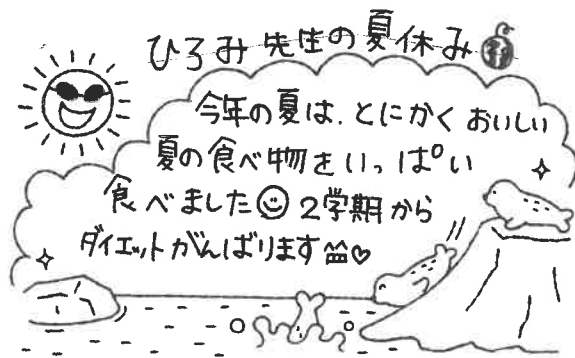 ひろみ先生の夏休み
今年の夏は、とにかくおいしい
夏の食べ物をいっぱい
食べました 2学期から
ダイエットがんばります